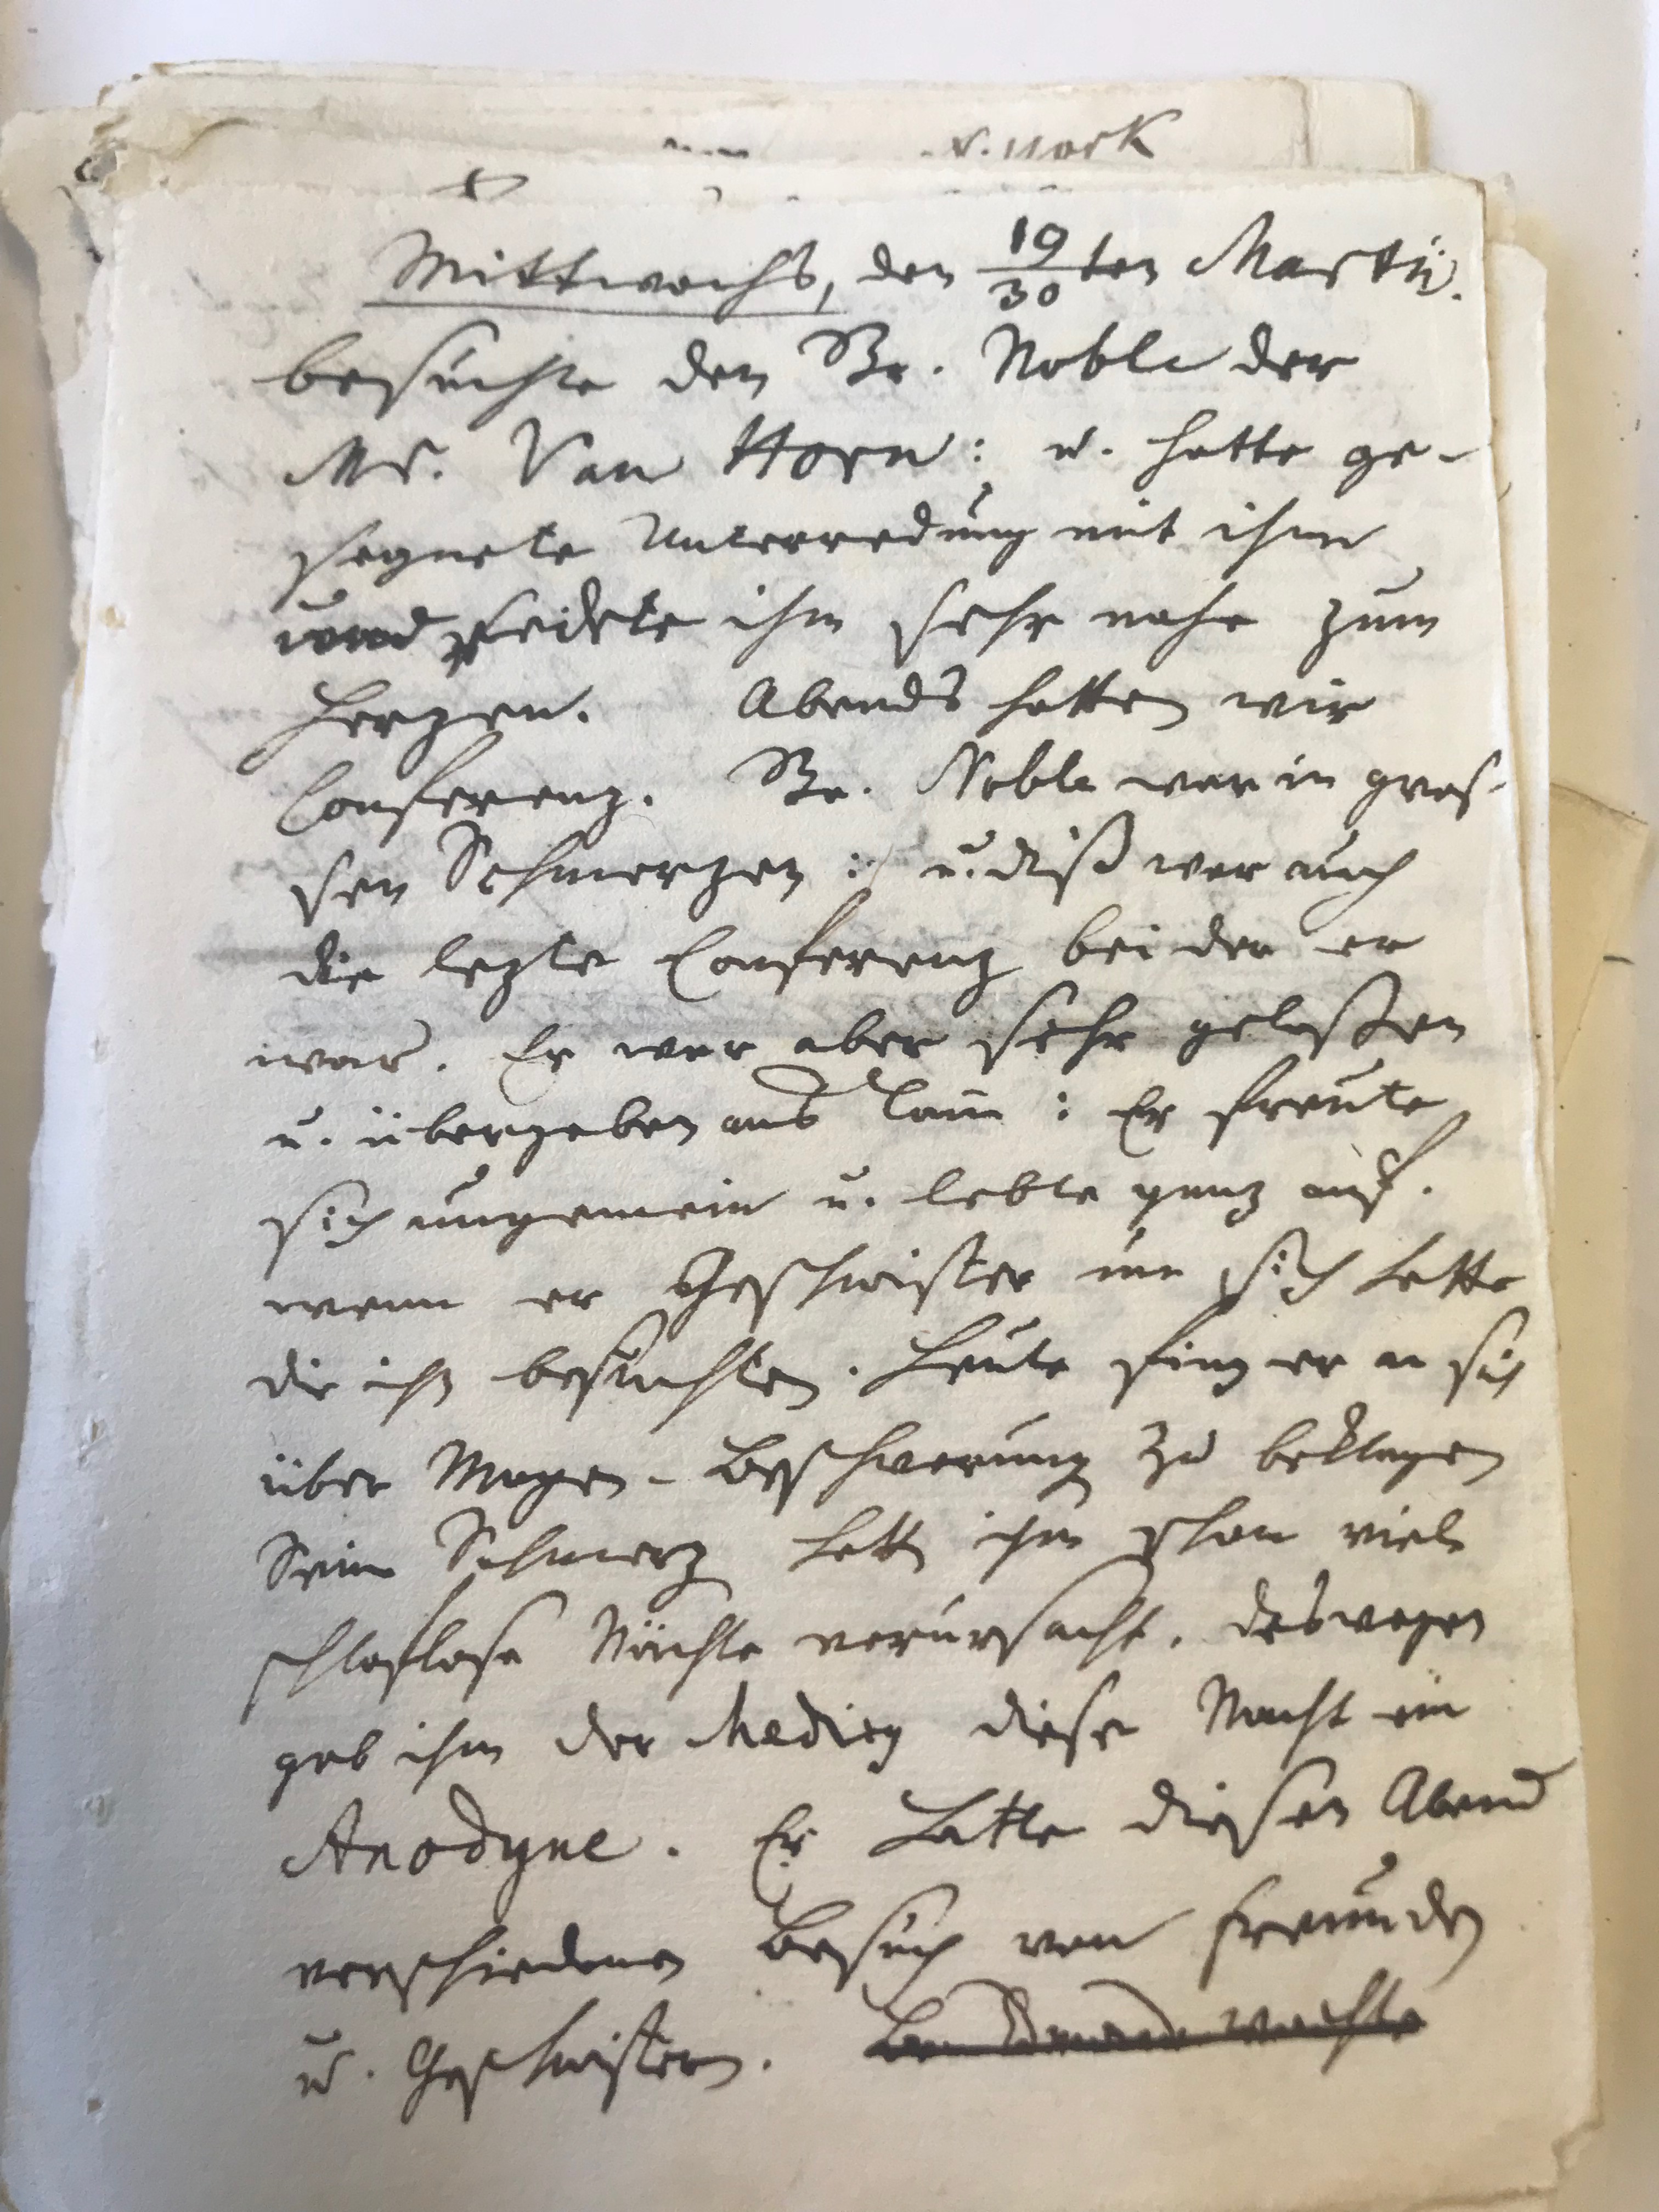 N. York
Mittwochs, den 19/30ten Martii.
besuchte den Br. Noble der
Mr. Van Horn: u. hatte ge-
segnete Unterredung mit ihm
und redete ihm sehr nahe zum
Herzen. Abends hatten wir
Conferenz. Br. Noble war in gros-
sen Schmerzen: u. diß war auch
die lezte Conferenz bei der er
war. Er war aber sehr gelassen
u. übergeben ans Lam: Er freute
sich ungemein u. lebte ganz auf.
wenn er Geschwister um sich hatte
die ihn besuchten. Heute fing er an sich
über Magen-Beschwerung zu beklagen
Sein Schmerz hatte ihm schon viele
schlaflose Nächte verursacht. deswegen
gab ihm der Medicg diese Nacht ein
Anodyne. Er hatte diesen Abend
verschiedenen Besuch von Freunden
u. Geschwistern. wachte